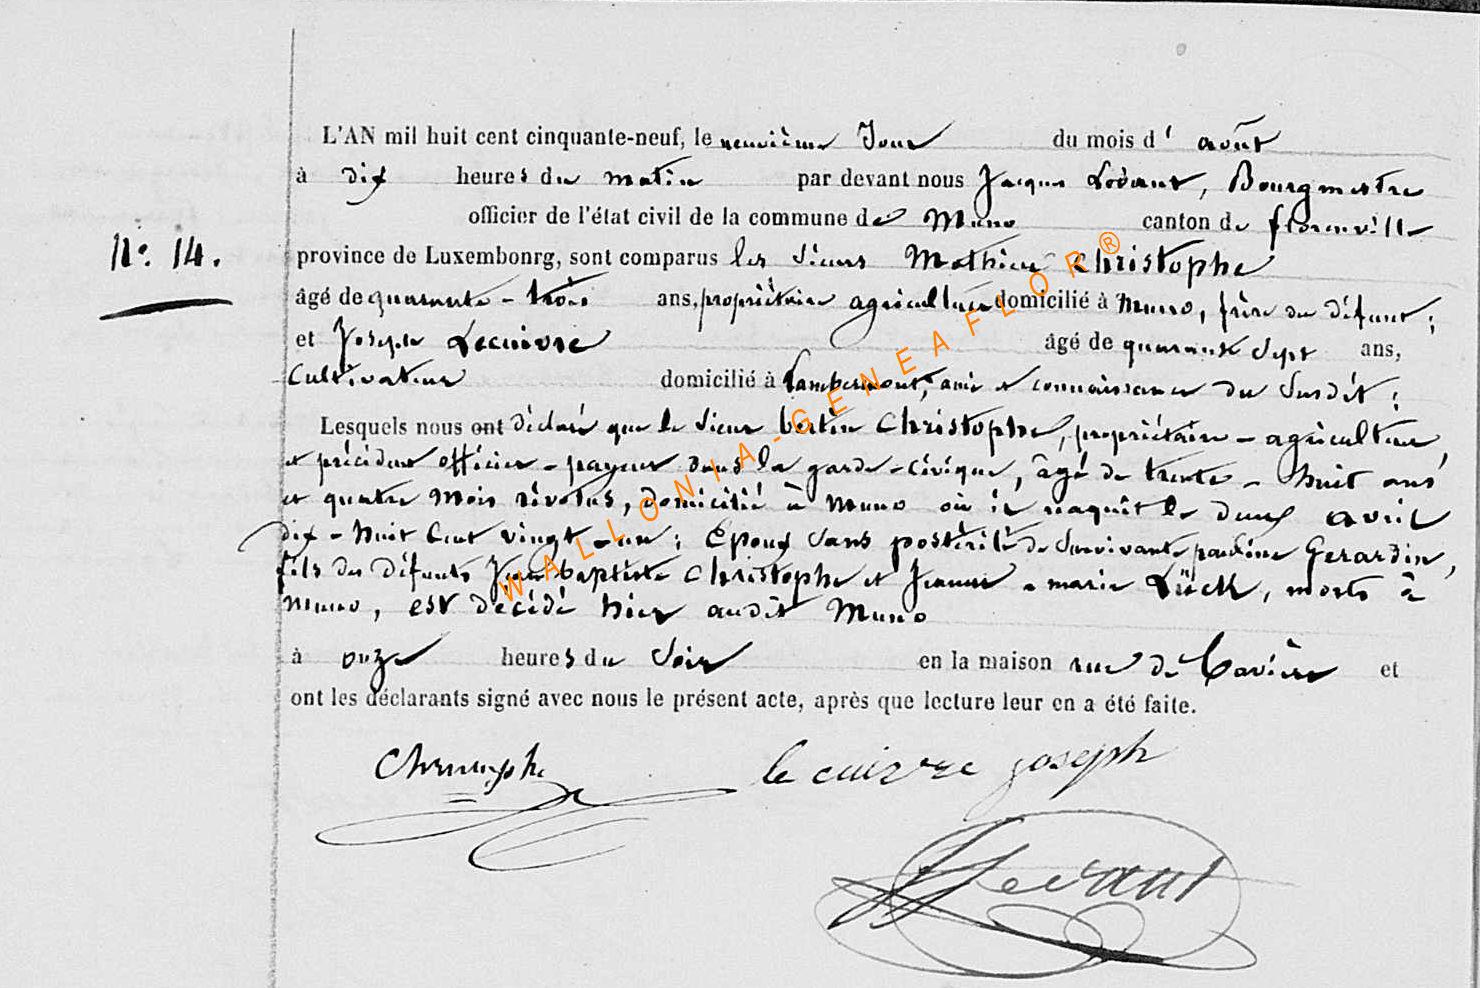 L'AN mil huit cent cinquante-neuf, le neuvième Jour du mois d' août
à dix heures du matin par devant nous Jacques Lodvant, Bourgmestre
officier de l'état civil de la commune de Muno canton de florenville
N° 14.
province de Luxembonrg, sont comparus les sieurs Mathieu Christophe
âgé de quarante-trois ans, propriétaire agriculteur domicilié à Muno, frère du défunt;
et Joseph Lecuivre âgé de quarante sept ans,
Cultivateur domicilié à Lambermont, ami et connaissance du susdit;
Lesquels nous ont déclaré que le sieur bertin Christophe, propriétaire-agriculteur,
et précédent officier-payeur dans la garde-civique, âgé de trente-huit ans
et quatre mois révolus, domicilié à Muno où il naquît le deux avril
dix-huit cent vingt-un; Epoux sans postérité de survivante pauline Gerardin,
fils des défunts Jean baptiste Christophe et Jeanne-marie Lück, morts à
Muno, est décédé hier audit Muno
à onze heures du soir en la maison rue de et
ont les déclarants signé avec nous le présent acte, après que lecture leur en a été faite.
Christophe le cuivre joseph
WALLONIA-GENEAFLOR®